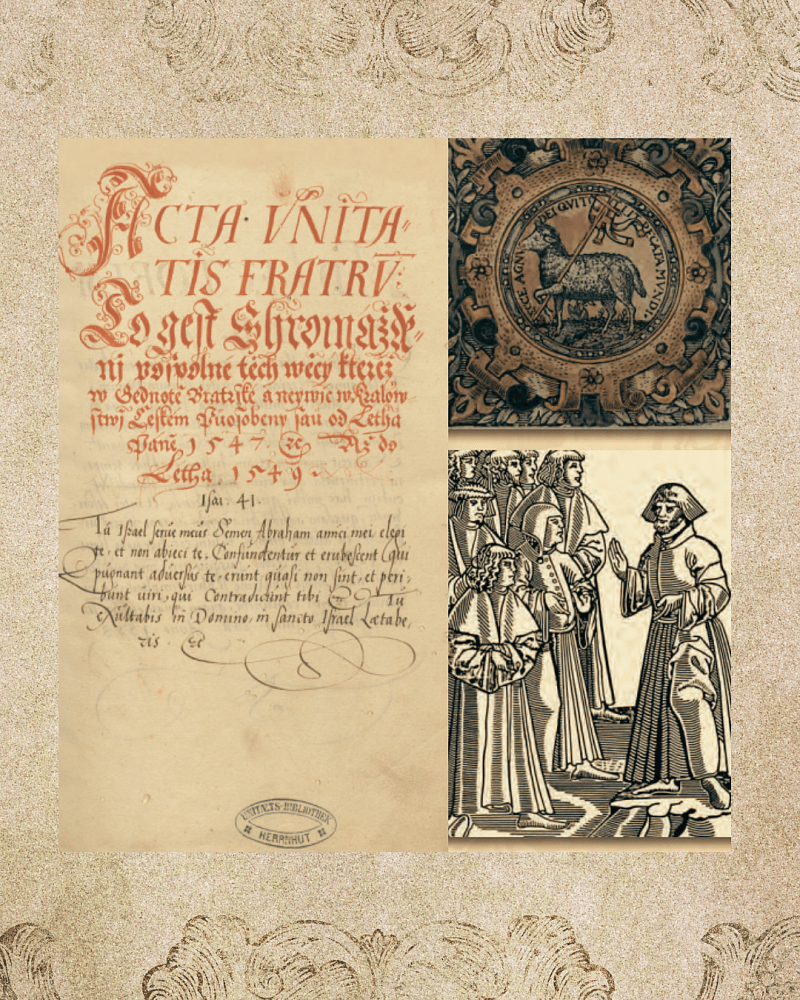 ACTA· VNITA-
TIS FRATRV̄:
To gest Shromážďe-
nj pospolné těch wěcý kteréž
w Gednotě Bratrské a neywíc w Kralow-
stwj Cžeském Puosobeny sau od Létha
Páně 1547. &c Až do
Létha. 1549
Isai: 41.
Tu Israel serue meus Semen Abraham amici mei elegi
te, et non abieci te. Confundentur et erubescent qui
pugnant aduersus te, erunt quasi non sint, et peri-
bunt uiri, qui Contradicunt tibi &c Tu
Exultabis in Domino, in sancto Israel Lætabe,
ris &c
UNITÆTS-BIBLIOTHEK
HERRNHUT
ECCE AGNV DEI QVI TOLLIT PECATA MVNDI